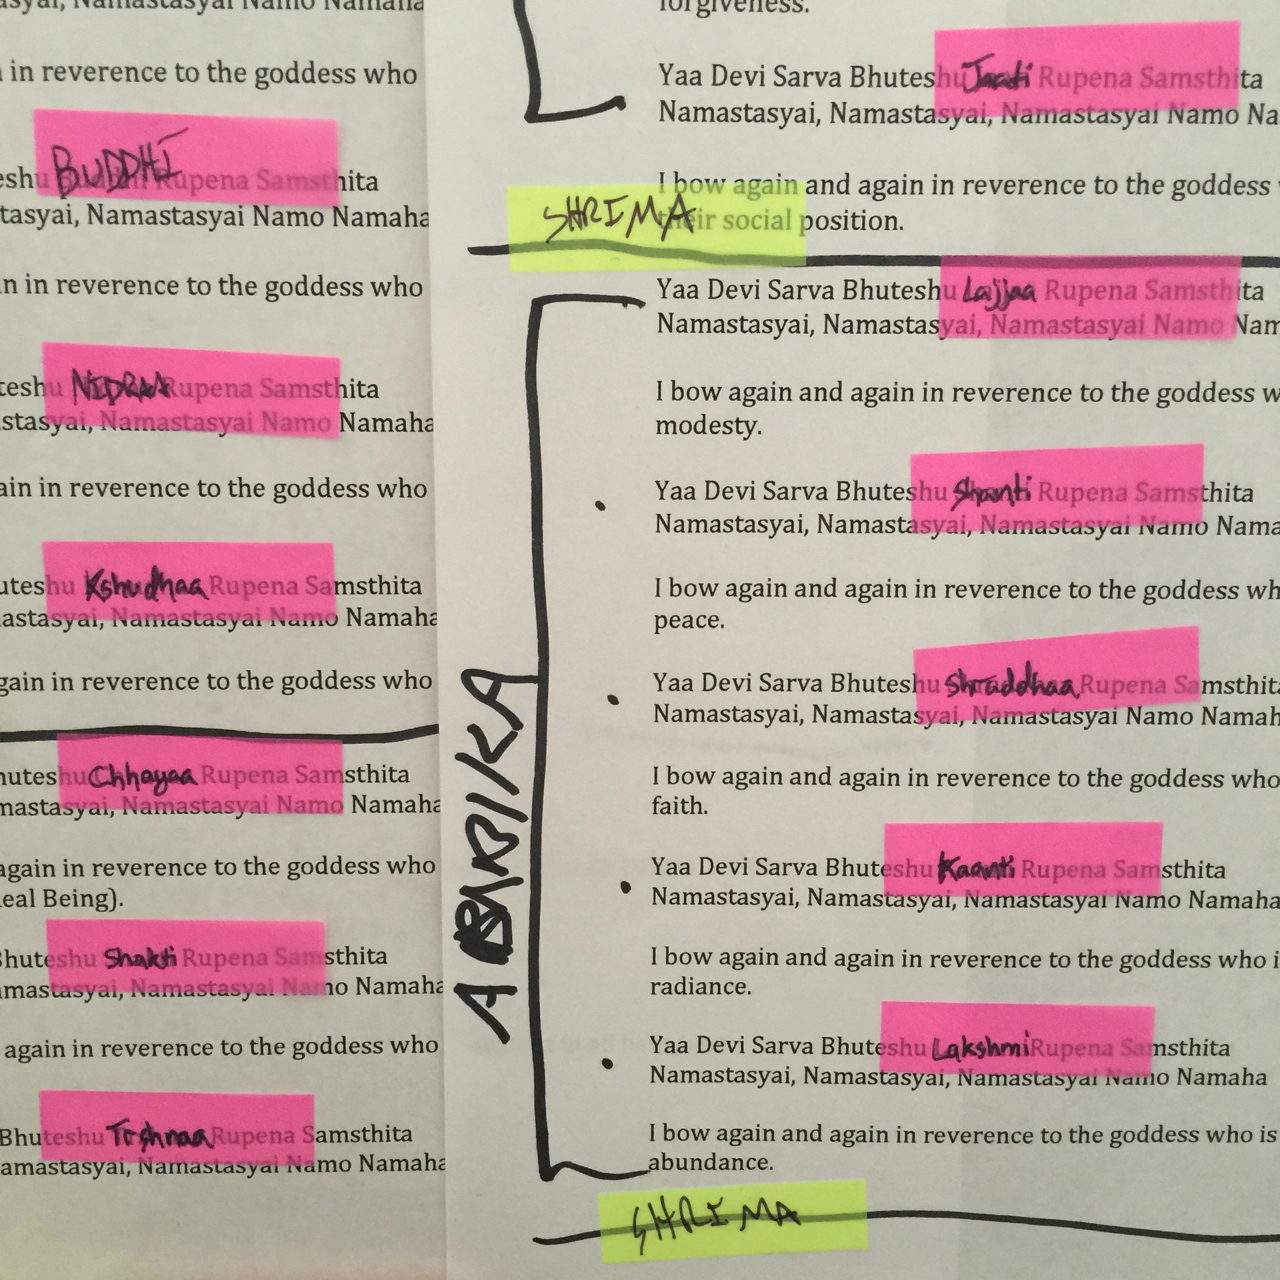 asyai, Namastasyai Namo Namaha
in reverence to the goddess who
eshu BUDDHI Rupena Samsthita
tasyai, Namastasyai Namo Namaha
n in reverence to the goddess who
teshu NIDRAA Rupena Samsthita
stasyai, Namastasyai Namo Namaha
ain in reverence to the goddess who
uteshu Kshudhaa Rupena Samsthita
astasyai, Namastasyai Namo Namaha
gain in reverence to the goddess who
huteshu Chhayaa Rupena Samsthita
mastasyai, Namastasyai Namo Namaha
again in reverence to the goddess who
eal Being).
Bhuteshu Shakti Rupena Samsthita
amastasyai, Namastasyai Namo Namaha
again in reverence to the goddess who
Bhuteshu Rupena Samsthita
amastasyai, Namastasyai Namo Namaha
forgiveness.
Yaa Devi Sarva Bhuteshu Jaati Rupena Samsthita
Namastasyai, Namastasyai, Namastasyai Namo Na
I bow again and again in reverence to the goddess
their social position.
SHRIMA
Yaa Devi Sarva Bhuteshu Lajjaa Rupena Samsthita
Namastasyai, Namastasyai, Namastasyai Namo Nam
I bow again and again in reverence to the goddess w
modesty.
Yaa Devi Sarva Bhuteshu Shanti Rupena Samsthita
Namastasyai, Namastasyai, Namastasyai Namo Nama
I bow again and again in reverence to the goddess wh
peace.
Yaa Devi Sarva Bhuteshu Shraddhaa Rupena Samsthita
Namastasyai, Namastasyai, Namastasyai Namo Namah
I bow again and again in reverence to the goddess who
faith.
Yaa Devi Sarva Bhuteshu Kaanti Rupena Samsthita
Namastasyai, Namastasyai, Namastasyai Namo Namaha
I bow again and again in reverence to the goddess who i
radiance.
Yaa Devi Sarva Bhuteshu Lakshmi Rupena Samsthita
Namastasyai, Namastasyai, Namastasyai Namo Namaha
I bow again and again in reverence to the goddess who is
abundance.
SHRIMA